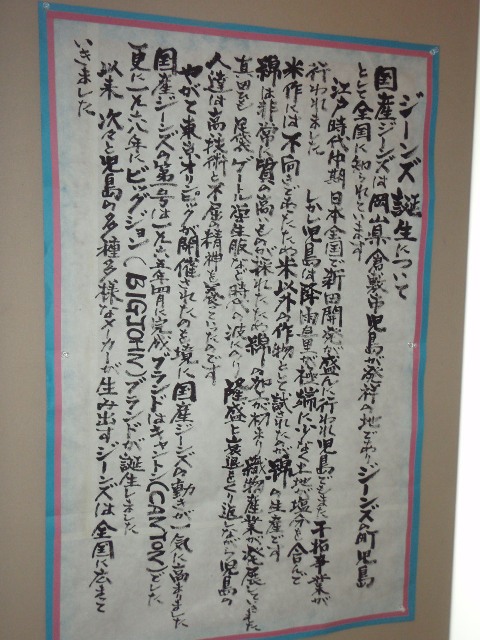 ジーンズ誕生について
国産ジーンズは岡山県倉敷市児島が発祥の地であり ジーンズの町児島
として全国に知られています
江戸時代中期 日本全国で新田開発が盛んに行われ児島でもまた干拓事業が
行われました しかし児島は降雨量が極端に少なく土地が塩分を含んで
米作には不向きであったため米以外の作物として試されたが綿の生産です
綿は非常に質の高いものが採れたため綿の加工が始まり織物産業が発展していきました
真田ひも 足袋 ゲートル 学生服など時代の波にのり 隆盛と衰退をくり返しながら児島の
人達は高い技術と不屈の精神を養っていったのです
やがて東京オリンピックが開催されたのを境に国産ジーンズの動きが一気に高まりました
国産ジーンズの第一号は一九六五年四月に完成 ブランドはキャントン(CANTON)でした
更に一九六八年にビッグジョン(BIGJOHN)ブランドが誕生しました
以来 次々と児島の多種多様なメーカーが生み出すジーンズは全国に広まって
いきました